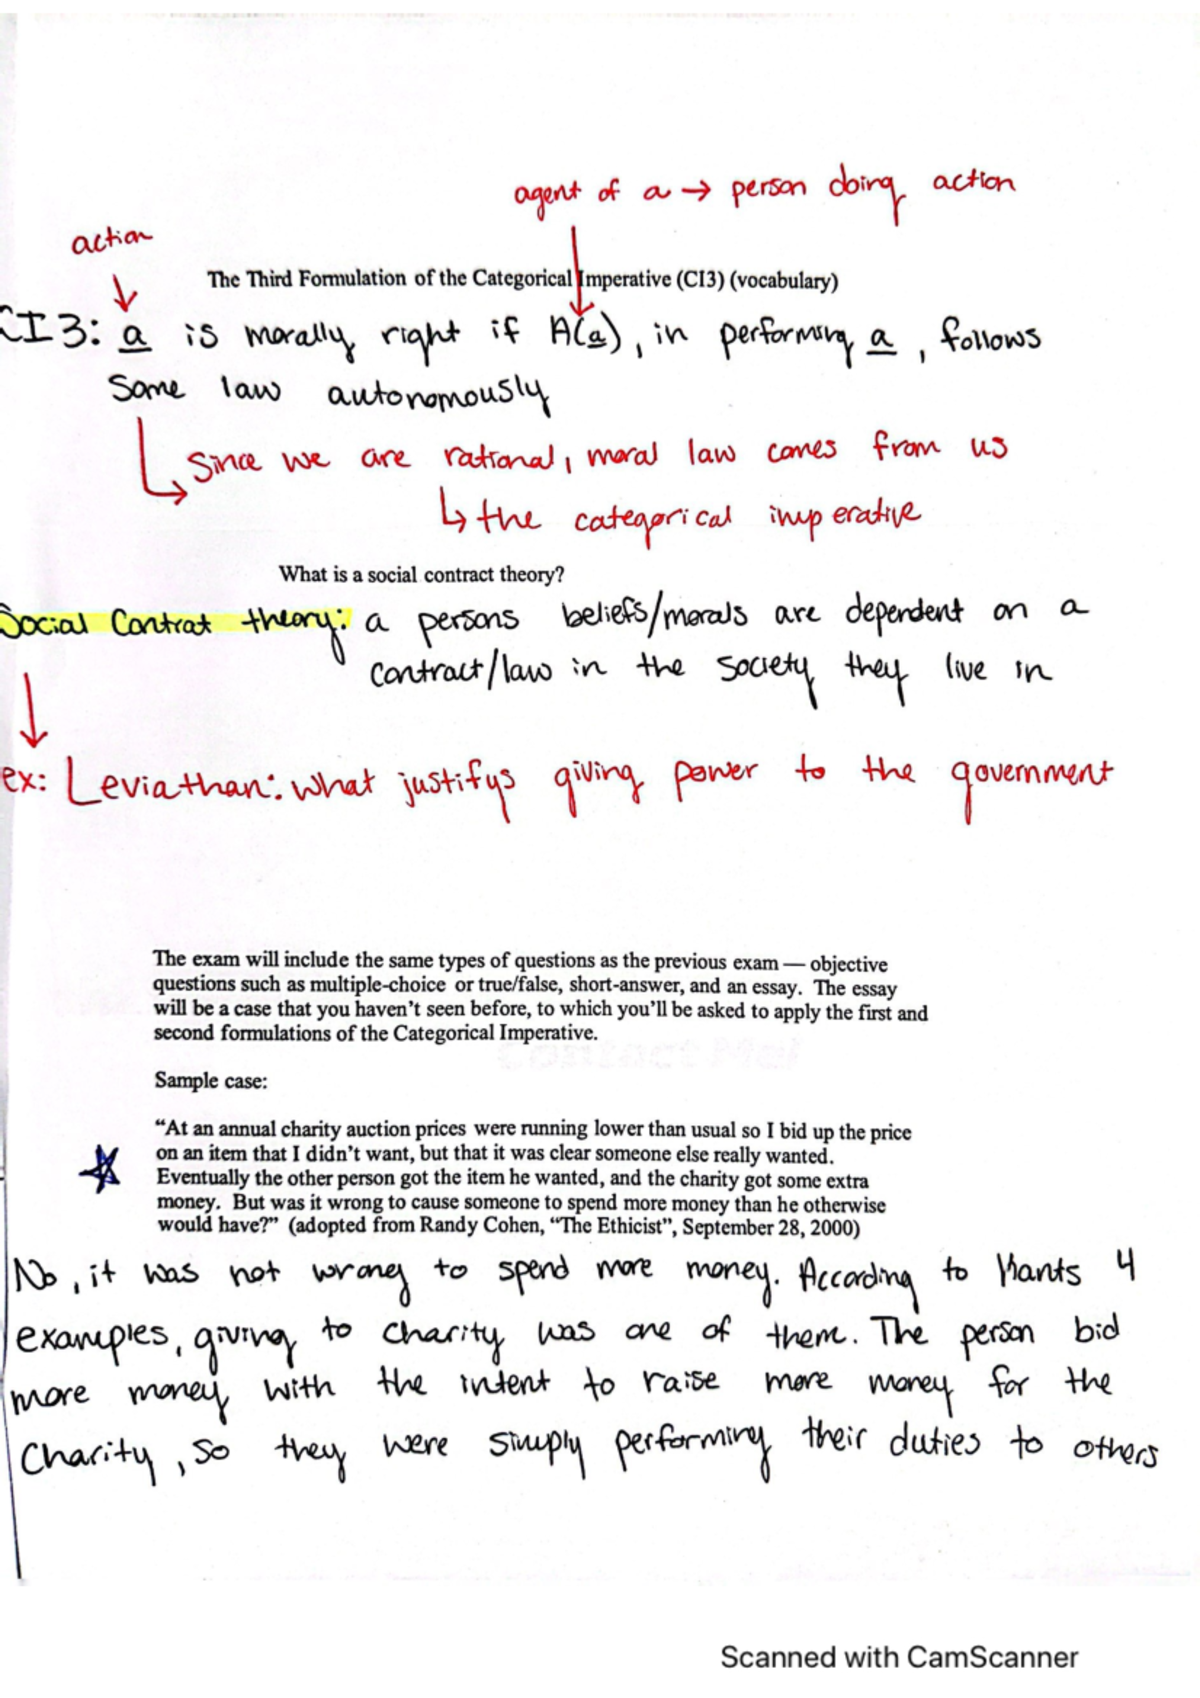 agent of a → person doing action
action
The Third Formulation of the Categorical Imperative (CI3) (vocabulary)
CI3: a is morally right if A(a), in performing a, follows
some law autonomously
↳ since we are rational, moral law comes from us
↳ the categorical imperative
What is a social contract theory?
Social Contrat theory: a persons beliefs/morals are dependent on a
contract/law in the society they live in
ex: Leviathan: what justifys giving power to the government
The exam will include the same types of questions as the previous exam — objective
questions such as multiple-choice or true/false, short-answer, and an essay. The essay
will be a case that you haven't seen before, to which you'll be asked to apply the first and
second formulations of the Categorical Imperative.
Sample case:
“At an annual charity auction prices were running lower than usual so I bid up the price
on an item that I didn't want, but that it was clear someone else really wanted.
Eventually the other person got the item he wanted, and the charity got some extra
money. But was it wrong to cause someone to spend more money than he otherwise
would have?” (adopted from Randy Cohen, “The Ethicist”, September 28, 2000)
No, it was not wrong to spend more money. According to Kants 4
examples, giving to charity was one of them. The person bid
more money with the intent to raise more money for the
Charity, so they were simply performing their duties to others
Scanned with CamScanner